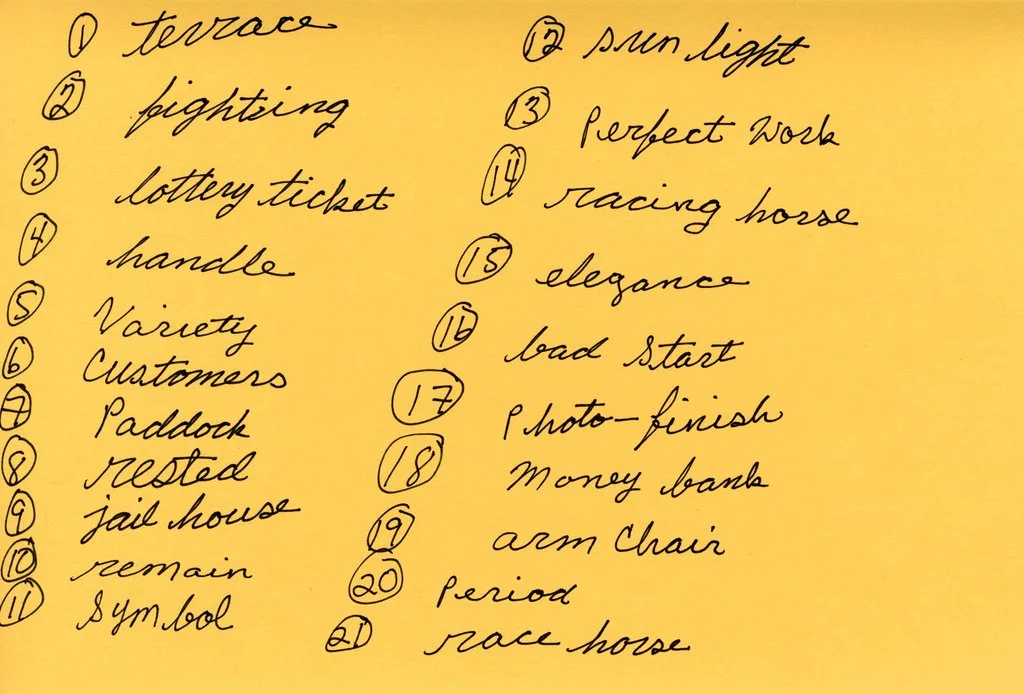 1 terrace
2 fighting
3 lottery ticket
4 handle
5 Variety
6 Customers
7 Paddock
8 rested
9 jail house
10 remain
11 Symbol
12 sun light
13 Perfect Work
14 racing horse
15 elegance
16 bad Start
17 Photo-finish
18 Money bank
19 arm Chair
20 Period
21 race horse